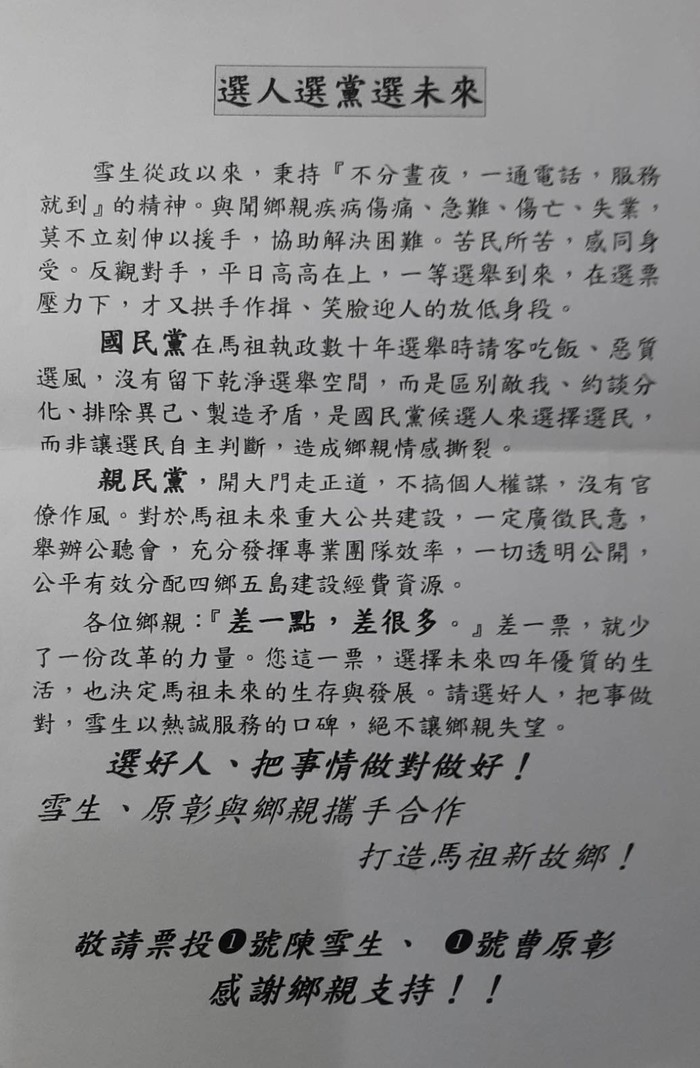 選人選黨選未來
雪生從政以來，秉持『不分晝夜，一通電話，服務
就到』的精神。與聞鄉親疾病傷痛、急難、傷亡、失業，
莫不立刻伸以援手，協助解決困難。苦民所苦，感同身
受。反觀對手，平日高高在上，一等選舉到來，在選票
壓力下，才又拱手作揖、笑臉迎人的放低身段。
國民黨在馬祖執政數十年選舉時請客吃飯、惡質
選風，沒有留下乾淨選舉空間，而是區別敵我、約談分
化、排除異己、製造矛盾，是國民黨候選人來選擇選民，
而非讓選民自主判斷，造成鄉親情感撕裂。
親民黨，開大門走正道，不搞個人權謀，沒有官
僚作風。對於馬祖未來重大公共建設，一定廣徵民意，
舉辦公聽會，充分發揮專業團隊效率，一切透明公開，
公平有效分配四鄉五島建設經費資源。
各位鄉親：『差一點，差很多。』差一票，就少
了一份改革的力量。您這一票，選擇未來四年優質的生
活，也決定馬祖未來的生存與發展。請選好人，把事做
對，雪生以熱誠服務的口碑，絕不讓鄉親失望。
選好人、把事情做對做好！
雪生、原彰與鄉親攜手合作
打造馬祖新故鄉！
敬請票投❶號陳雪生、 ❶號曹原彰
感謝鄉親支持！！